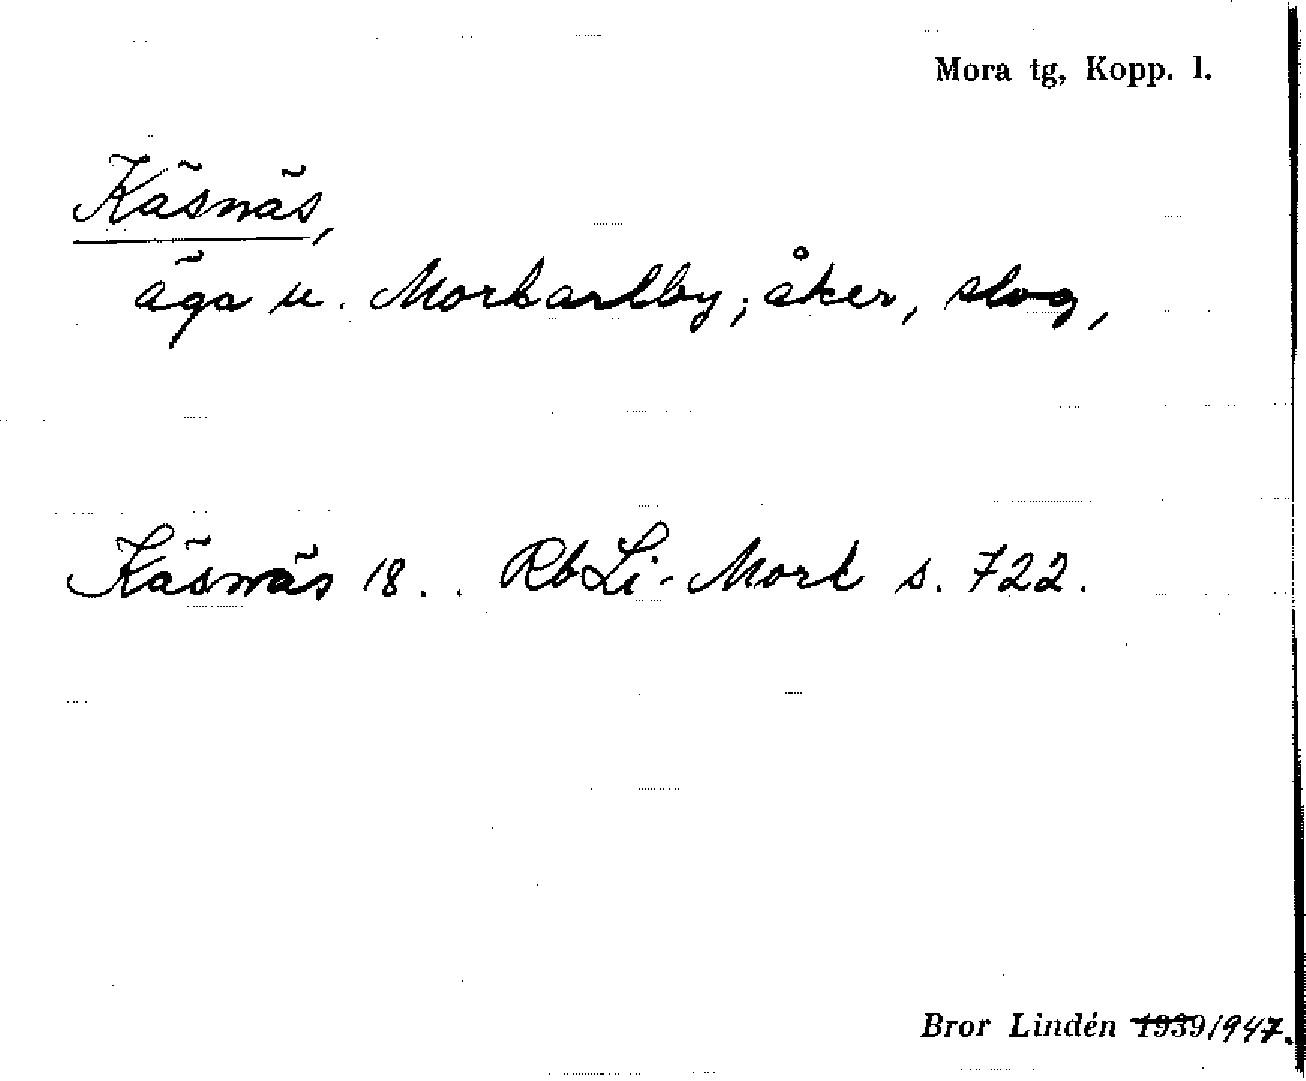 Mora tg, Kopp. l.
Käsnäs,
äga u. Morkarlby; åker, slog,
Käsnäs 18. . RbLi-Mork s. 722.
Bror Lindén 1939 1947.